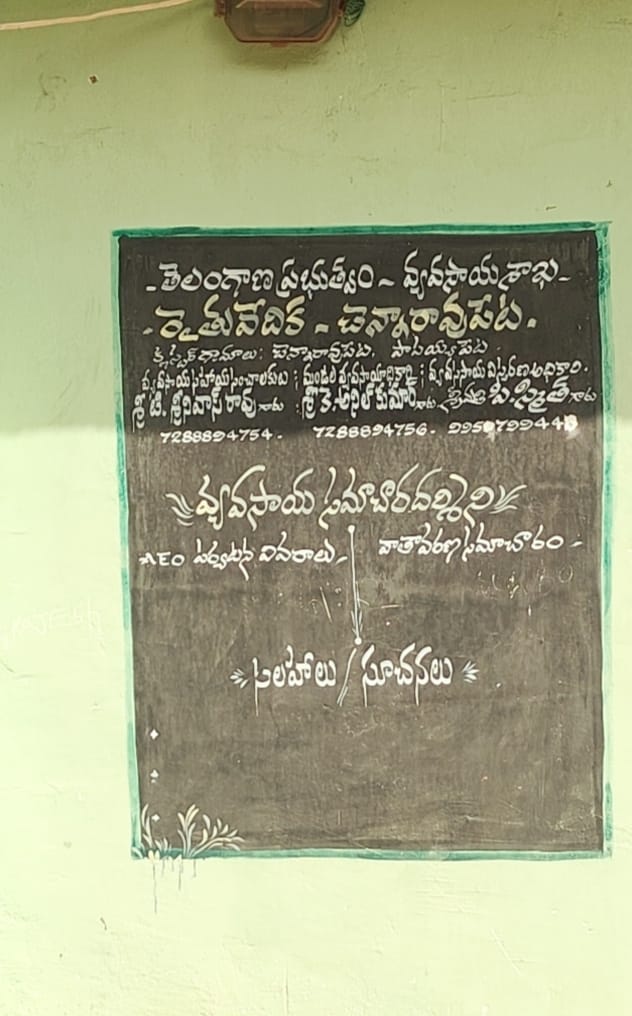 -తెలంగాణ ప్రభుత్వం - వ్యవసాయ శాఖ-
-రైతువేదిక - చెన్నారావుపేట.
క్లస్టర్ గ్రామాలు: చెన్నారావుపేట, పాపయ్యపేట
వ్యవసాయ సహాయ సంచాలకులు ; మండల వ్యవసాయాధికారి ; వ్యవసాయ విస్తరణ అధికారి.
శ్రీ డి. శ్రీనివాస్ రావు గారు : శ్రీ కె. అనిల్ కుమార్ గారు శ్రీమతి పి. స్మిత గారు
7288894754. 7288894756.
వ్యవసాయ సమాచారదర్శిని
AEO పర్యటన వివరాలు- వాతావరణ సమాచారం -
సలహాలు / సూచనలు